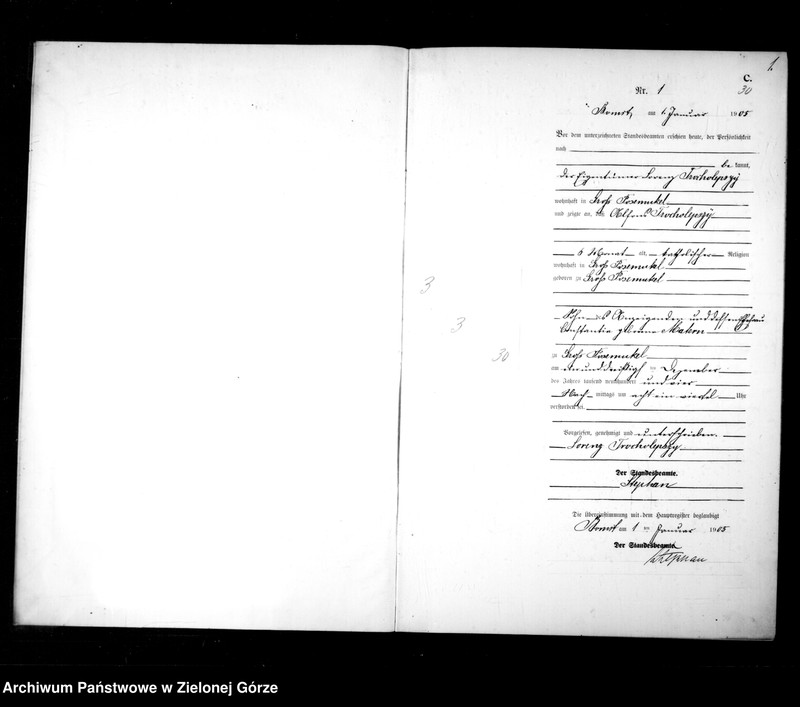 1.
C.
Nr. 1
30
Bomst, am 1. Januar 1905
Vor dem unterzeichneten Standesbeamten erschien heute, der Persönlichkeit
nach
be kannt,
der Eigentümer Lorenz
wohnhaft in Groß Posemukel
und zeigte an, daß Alfons
6 Monat alt, katholischer Religion
wohnhaft in Groß Posemukel
geboren zu Groß Posemukel
Sohn des Anzeigenden und dessen Ehefrau
Constantia geborene
zu Groß Posemukel
am einunddreißigsten Dezember
des Jahres tausend neunhundert und vier
Nach mittags um acht ein viertel Uhr
verstorben sei.
Vorgelesen, genehmigt und unterschrieben.
Lorenz
Der Standesbeamte.
Stephan
Die Übereinstimmung mit dem Hauptregister beglaubigt
Bomst am 1 ten Januar 1905
Der Standesbeamte.
Stephan
3
3
30
Archiwum Państwowe w Zielonej Górze